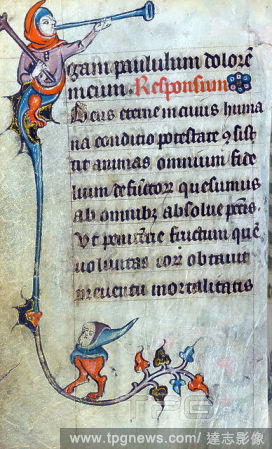 gam paululum dolorē
meum. Responsum
Deus eterne in cuius huma
na conditio potestate ꝯsist
tit animas omnium fide
lium defūctoꝝ quesumus
ab omnibꝫ absolue pctis.
Vt penitēcie fructum quē
uoluntas eoꝝ obtauit
preuentu mortalitatis
TPG
www.tpgnews.com/ 達志影像